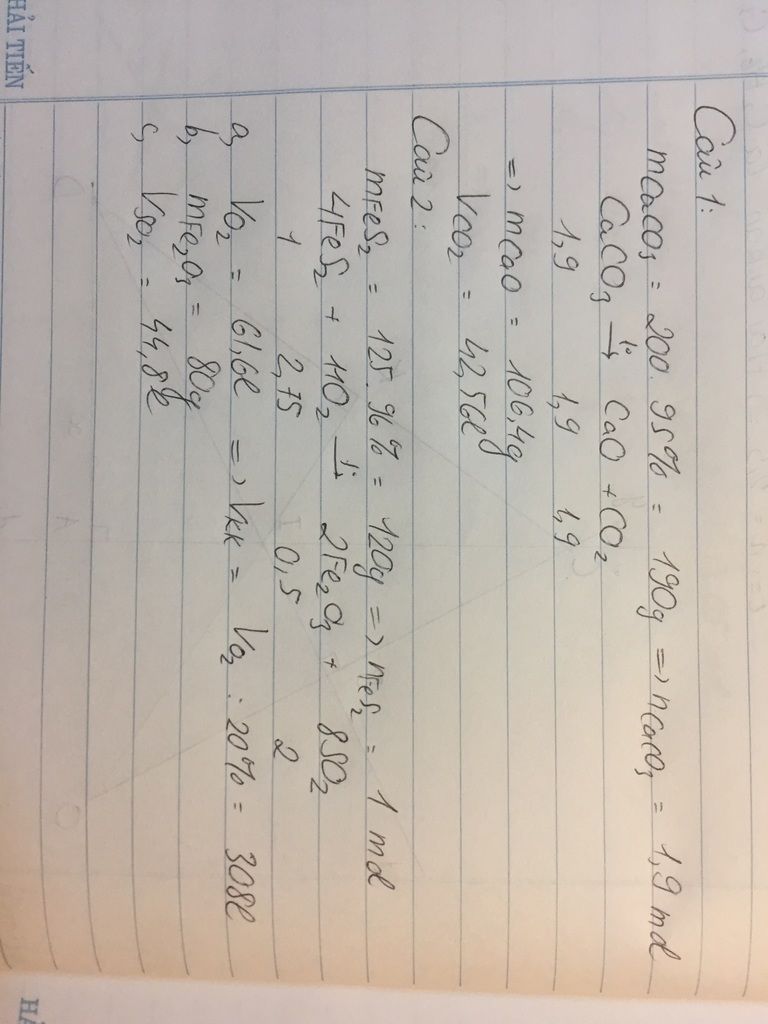 Câu 1:
mCaCO₃ = 200. 95% = 190g => nCaCO₃ = 1,9 mol
CaCO₃ –t°→ CaO + CO₂
1,9 1,9 1,9
=> mCaO = 106,4g
VCO₂ = 42,56l
Câu 2:
mFeS₂ = 125. 96% = 120g => nFeS₂ = 1 mol
4FeS₂ + 11O₂ –t°→ 2Fe₂O₃ + 8SO₂
1 2,75 0,5 2
a, VO₂ = 61,6l => Vkk = VO₂ : 20% = 308l
b, mFe₂O₃ = 80g
c, VSO₂ = 44,8l
HẢI TIẾN